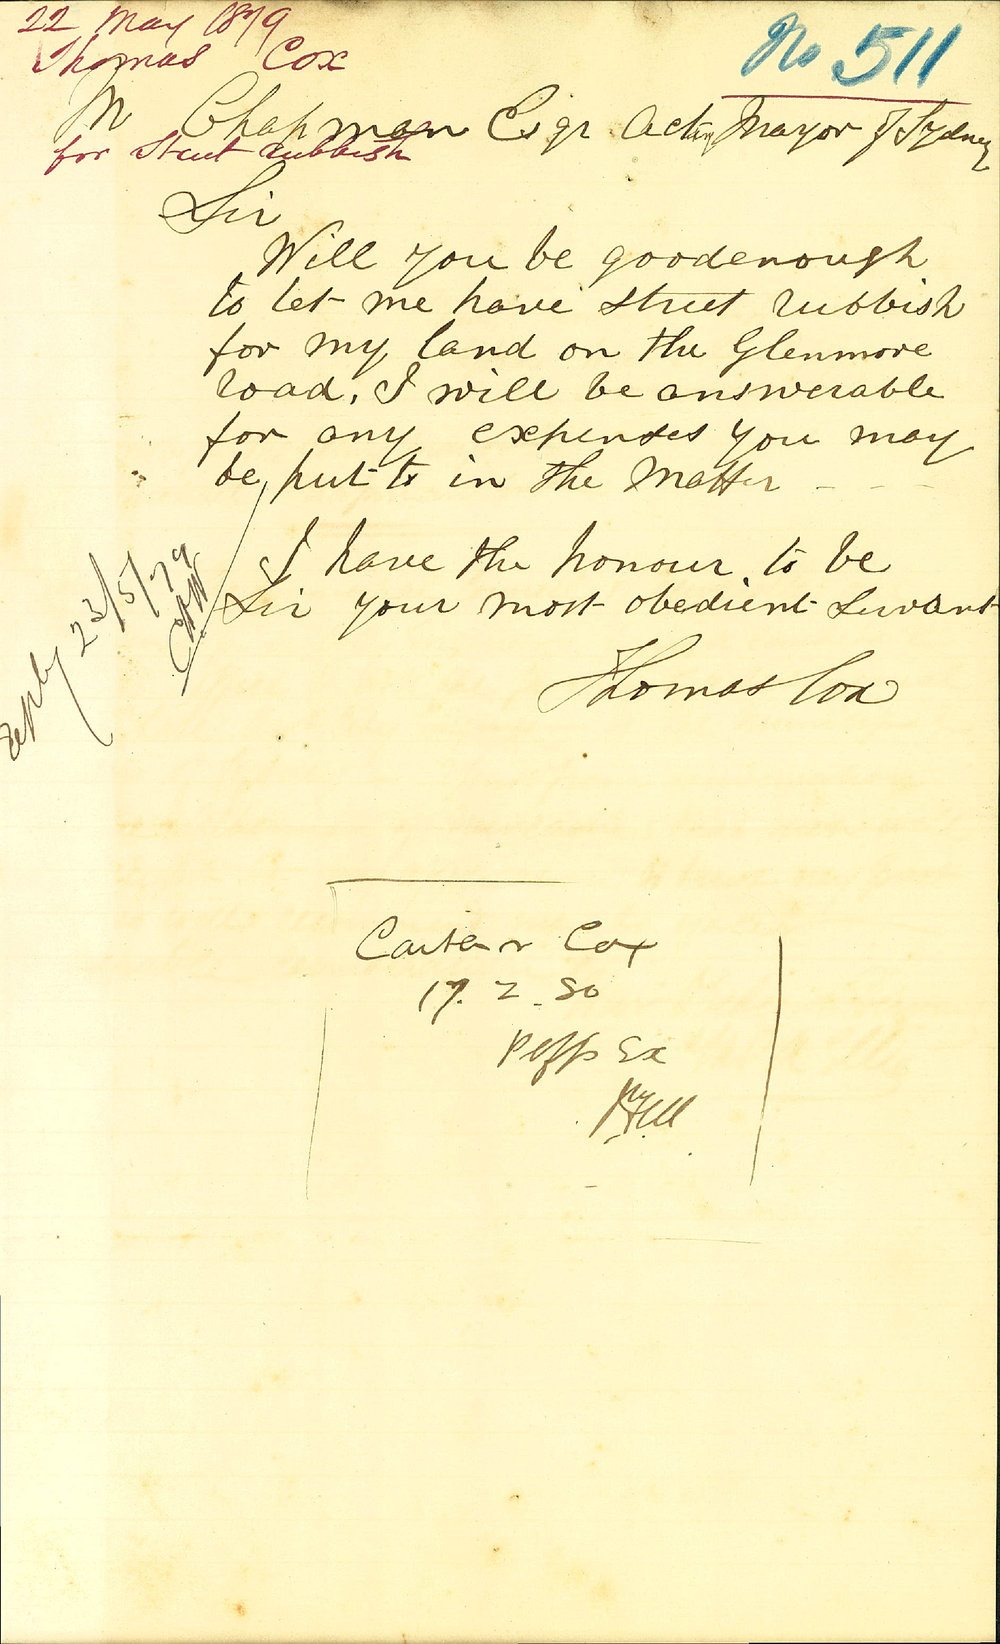 22 May 1879
No 511
Thomas Cox
M Chapman Esqr Acting Mayor of Sydney
for street rubbish
Sir
Will you be goodenough
to let me have street rubbish
for my land on the Glenmore
road. I will be answerable
for any expenses you may
be put to in the Matter
I have the honour to be
Sir your most obedient Servant
Thomas Cox
reply 23/5/79
Carter v Cox
17. 2. 80